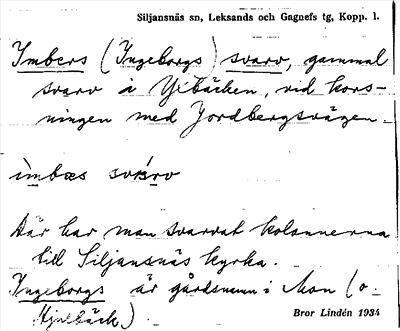 Siljansnäs sn, Leksands och Gagnefs tg, Kopp. l.
Imbers (Ingeborgs) svarv, gammal
svarv i Yxbäcken, vid kors-
ningen med Jordbergsvägen.
ìmbæs svárv
Där har man svarvat kolonnerna
till Siljansnäs kyrka.
Ingeborgs är gårdsnamn i Mon (o.
Hjulbäck).
Bror Lindén 1934